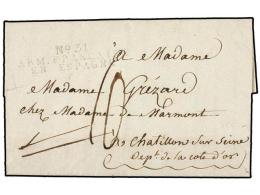 à Madame
No. 31
ARM. FRANÇAISE
EN ESPAGNE
Madame Grézard
chez Madame de Marmont
à Chatillon sur Seine
Dept. de la cote d'or